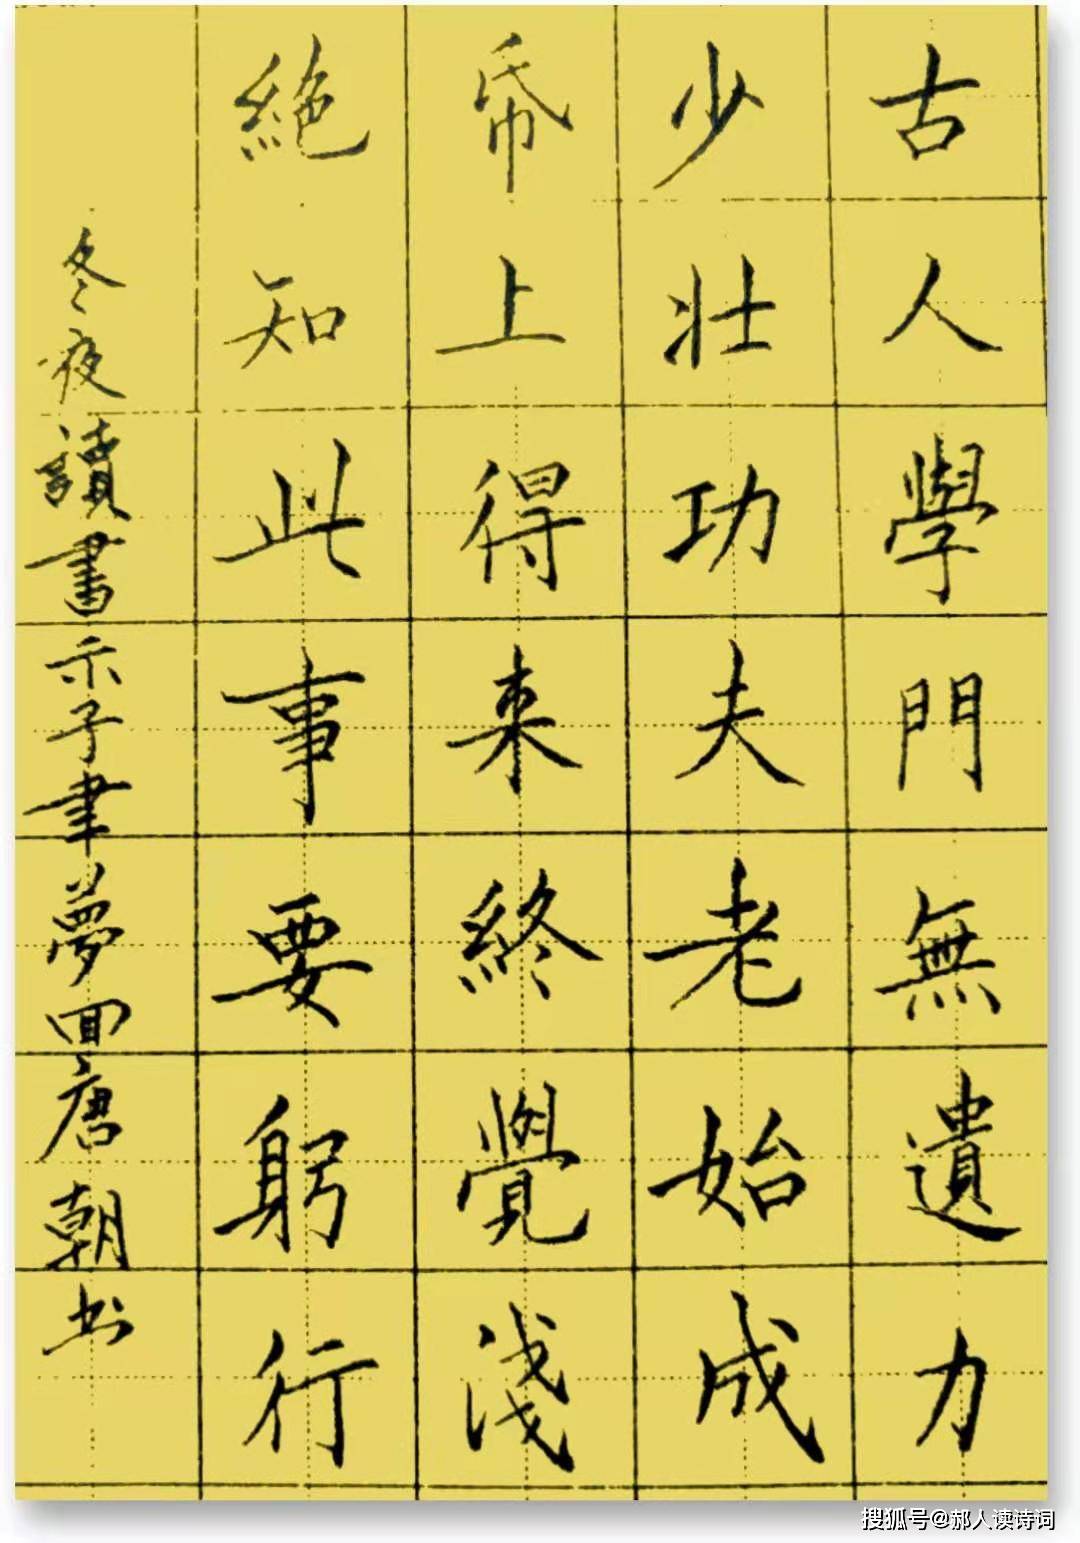 古人學門無遺力
少壯功夫老始成
帋上得來終覺淺
絕知此事要躬行
冬夜讀書示子聿夢回唐朝书
搜狐号@郝人读诗词